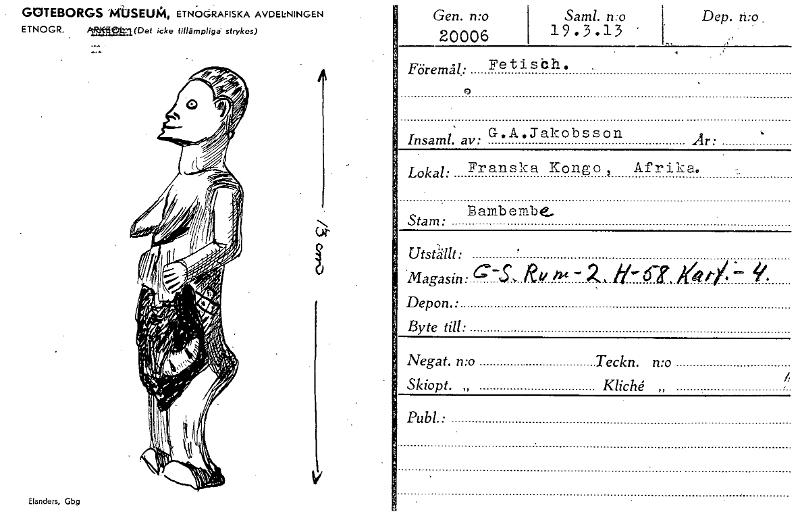 GÖTEBORGS MUSEUM, ETNOGRAFISKA AVDELNINGEN
ETNOGR. ARKEOL. (Det icke tillämpliga strykes)
13 cm
Elanders, Gbg
Gen. n:o Saml. n:o Dep. n:o
20006 19.3.13
Föremål: Fetisch.
Insaml. av: G.A.Jakobsson År:
Lokal: Franska Kongo, Afrika.
Stam: Bambembe
Utställt:
Magasin: G-S. Rum-2. H-68. Kart.-4.
Depon.:
Byte till:
Negat. n:o Teckn. n:o
Skiopt. „ Kliché „
Publ.: